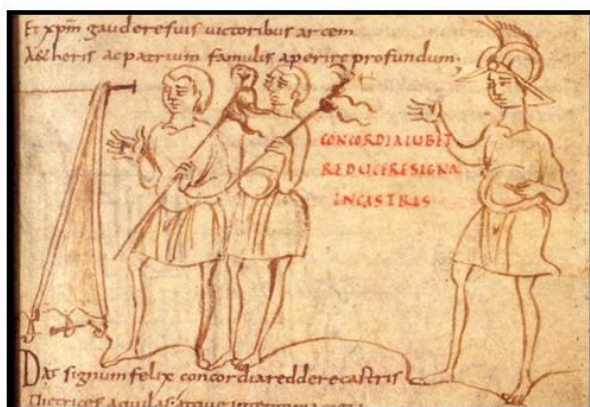 Et xpm gauderesuis uictoribus arcem
Aetheris acpatrium famulis aperire profundum;
CONCORDIA IUBET
REDUCERE SIGNA
IN CASTRIS
Dat signum felix concordia reddere castris
Uictrices aquilas; atque